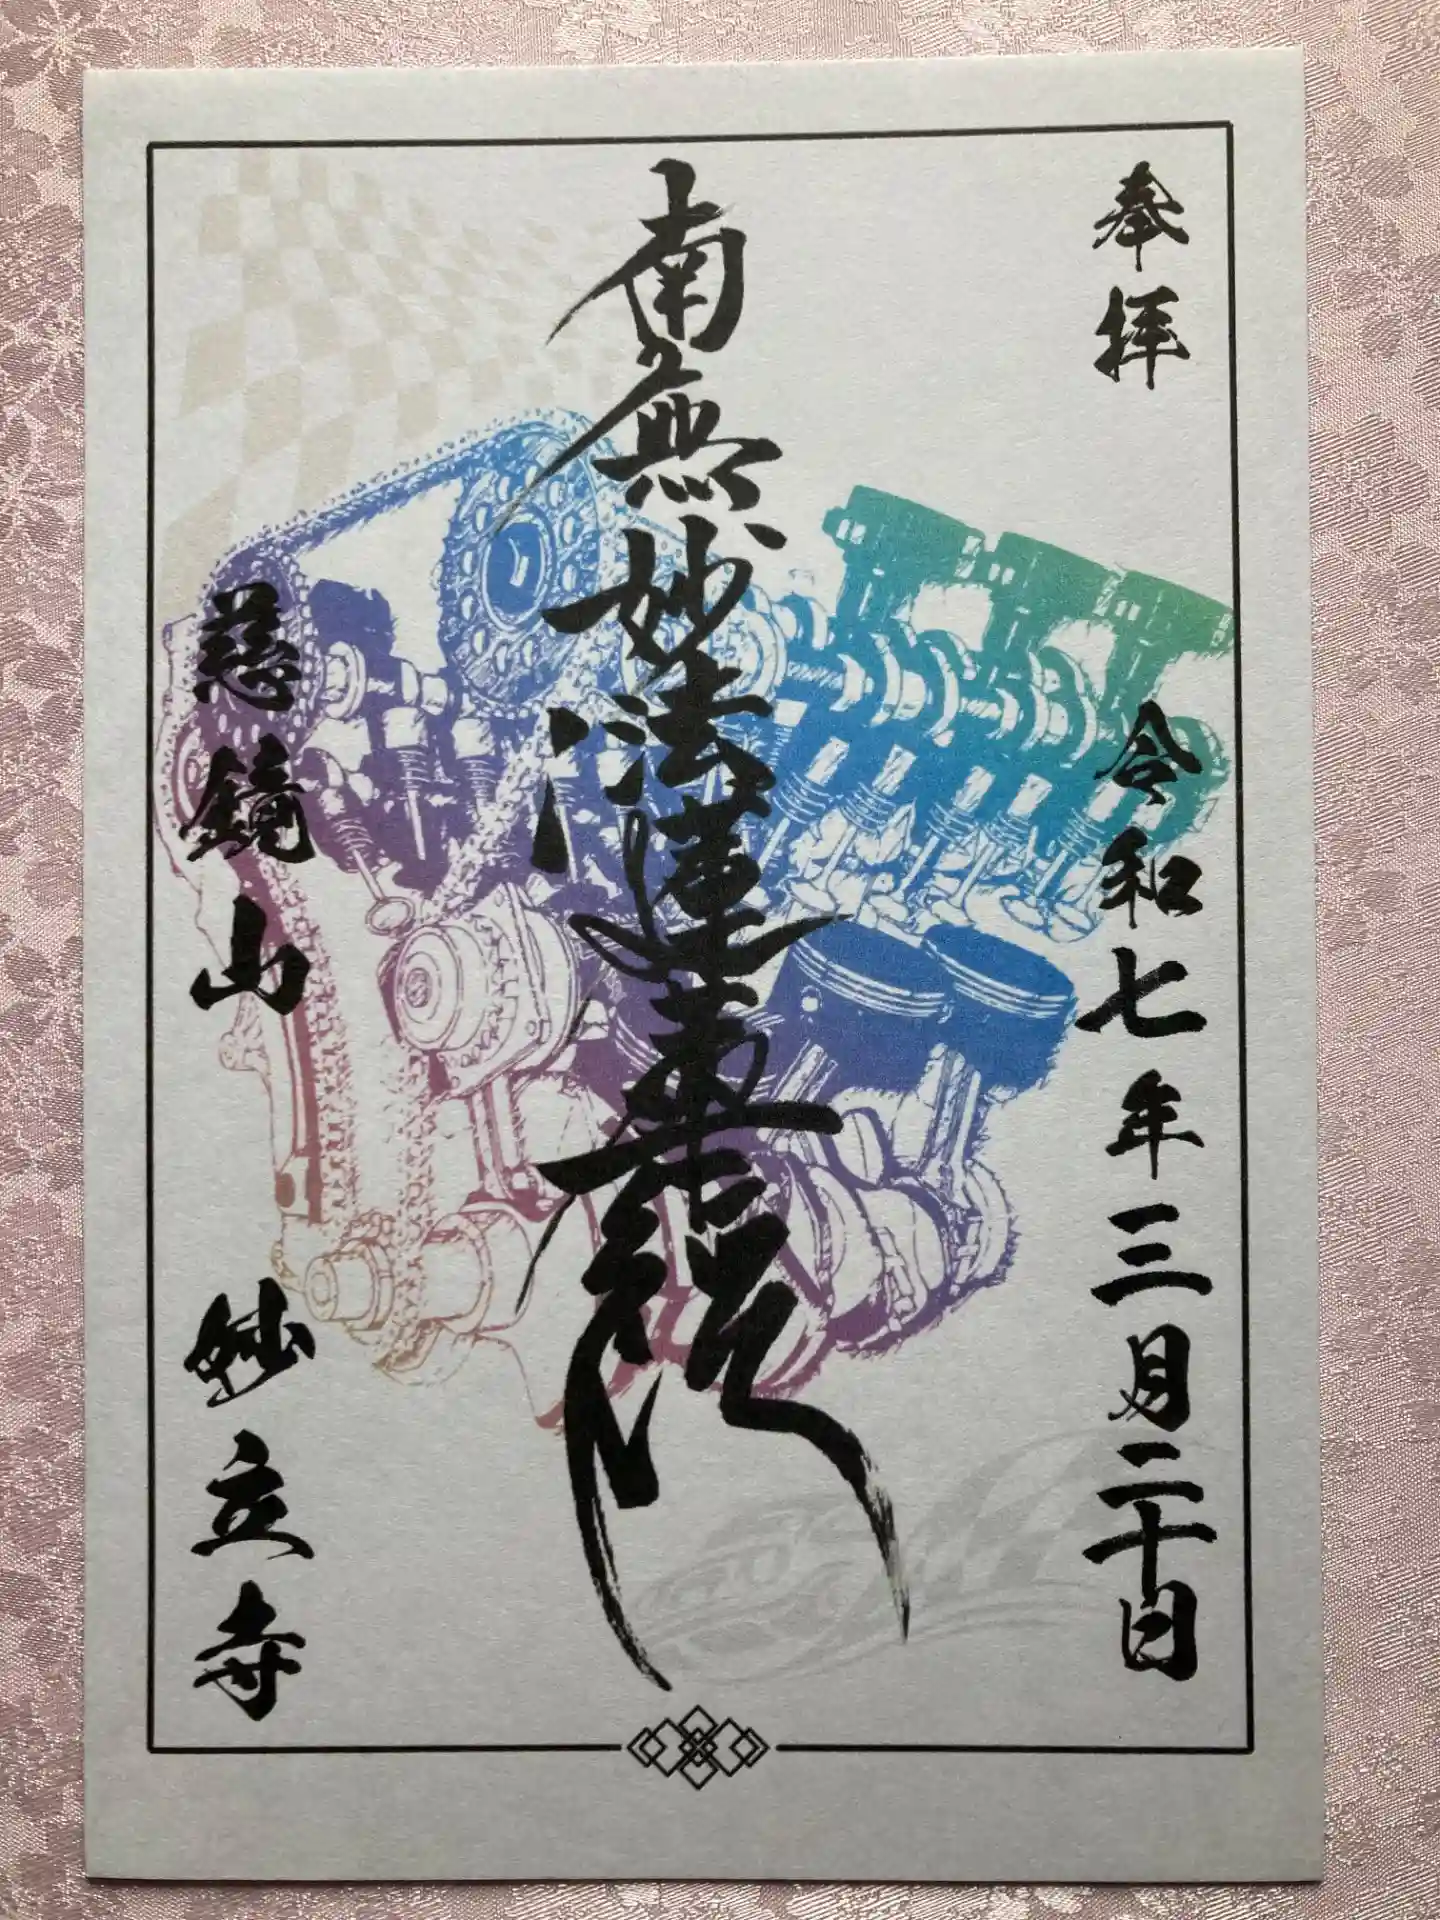 奉拝
令和七年三月二十日
南無妙法蓮華経
慈鏡山
妙立寺